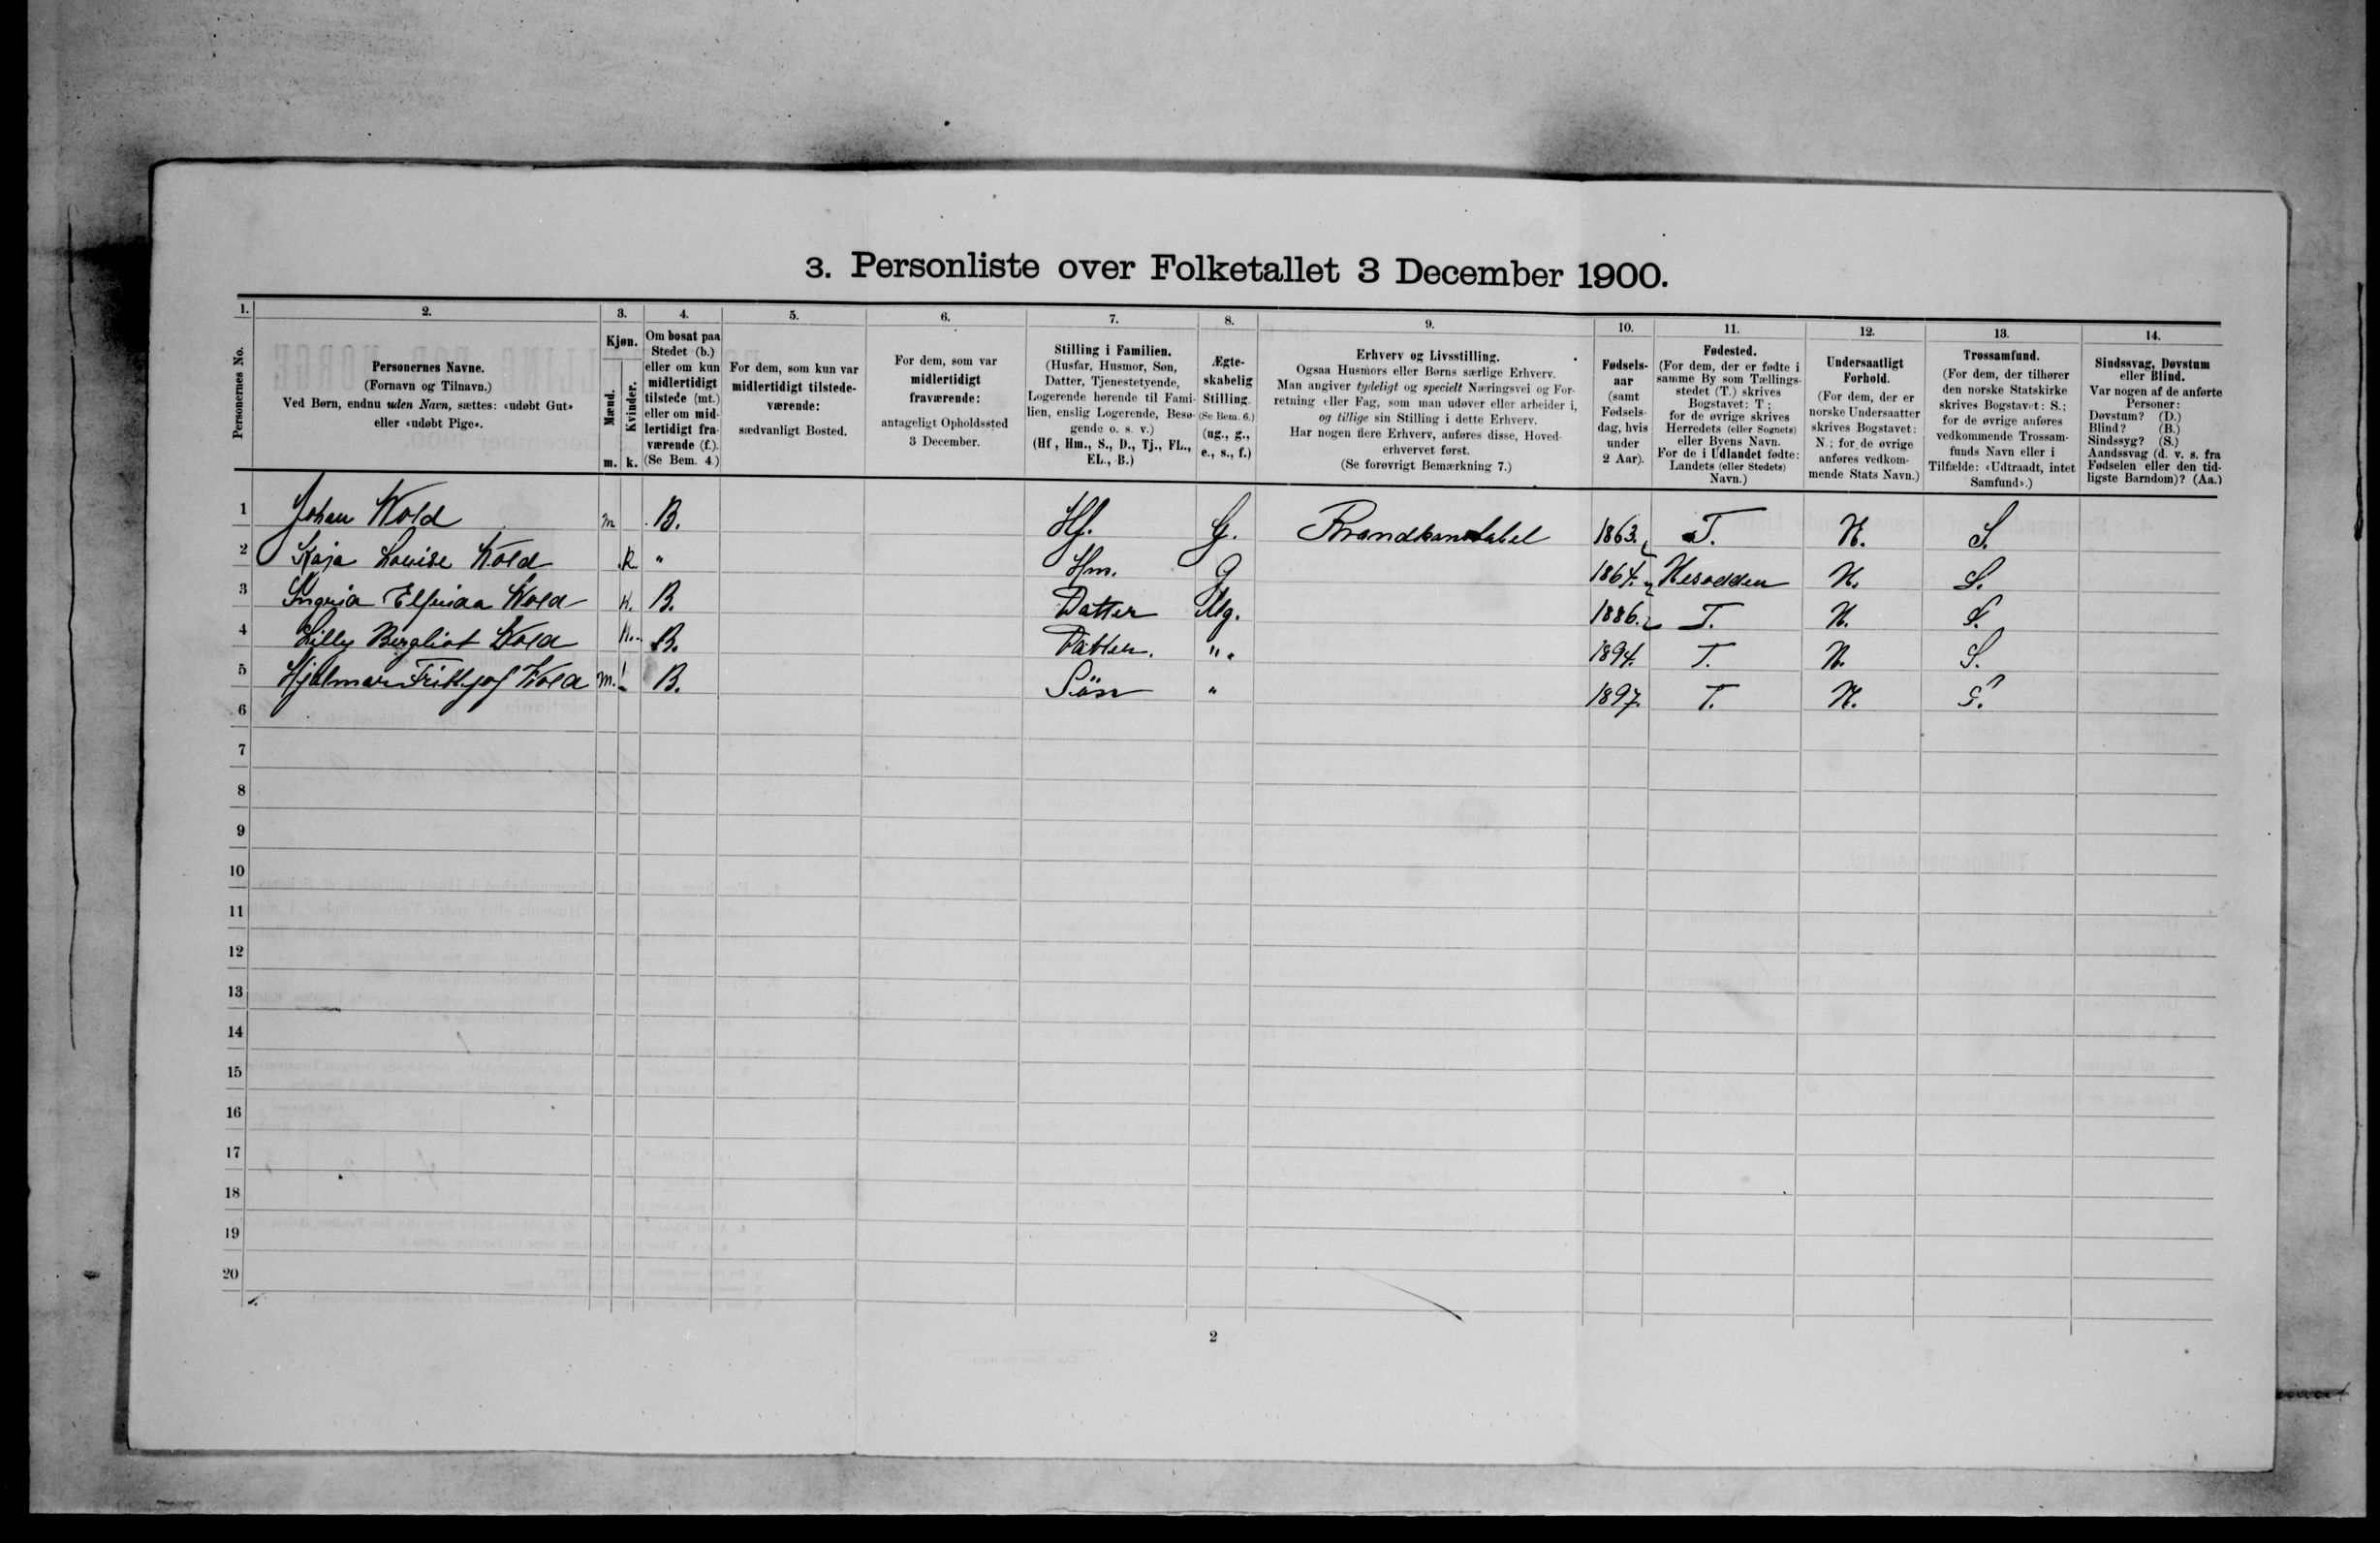 3. Personliste over Folketallet 3 December 1900.
1. 2. 3. 4. 5. 6. 7. 8. 9. 10. 11. 12. 13. 14.
Personernes No.
Personernes Navne.
(Fornavn og Tilnavn.)
Ved Børn, endnu uden Navn, sættes: «udøbt Gut»
eller «udøbt Pige».
Kjøn.
Mænd.
Kvinder.
m. k.
Om bosat paa
Stedet (b.)
eller om kun
midlertidigt
tilstede (mt.)
eller om mid-
lertidigt fra-
værende (f.).
(Se Bem. 4.)
For dem, som kun var
midlertidigt tilstede-
værende:
sædvanligt Bosted.
For dem, som var
midlertidigt
fraværende:
antageligt Opholdssted
3 December.
Stilling i Familien.
(Husfar, Husmor, Søn,
Datter, Tjenestetyende,
Logerende hørende til Fami-
lien, enslig Logerende, Besø-
gende o. s. v.)
(Hf., Hm., S., D., Tj., FL.,
EL., B.)
Ægte-
skabelig
Stilling.
(Se Bem. 6.)
(ug., g.,
e., s., f.)
Erhverv og Livsstilling.
Ogsaa Husmors eller Børns særlige Erhverv.
Man angiver tydeligt og specielt Næringsvei og For-
retning eller Fag, som man udøver eller arbeider i,
og tillige sin Stilling i dette Erhverv.
Har nogen flere Erhverv, anføres disse, Hoved-
erhvervet først.
(Se forøvrigt Bemærkning 7.)
Fødsels-
aar
(samt
Fødsels-
dag, hvis
under
2 Aar).
Fødested.
(For dem, der er fødte i
samme By som Tællings-
stedet (T.) skrives
Bogstavet: T ;
for de øvrige skrives
Herredets (eller Sognets)
eller Byens Navn.
For de i Udlandet fødte:
Landets (eller Stedets)
Navn.)
Undersaatligt
Forhold.
(For dem, der er
norske Undersaatter
skrives Bogstavet:
N.; for de øvrige
anføres vedkom-
mende Stats Navn.)
Trossamfund.
(For dem, der tilhører
den norske Statskirke
skrives Bogstavet: S.;
for de øvrige anføres
vedkommende Trossam-
funds Navn eller i
Tilfælde: «Udtraadt, intet
Samfund».)
Sindssvag, Døvstum
eller Blind.
Var nogen af de anførte
Personer:
Døvstum? (D.)
Blind? (B.)
Sindssyg? (S.)
Aandssvag (d. v. s. fra
Fødselen eller den tid-
ligste Barndom)? (Aa.)
1 Johan Wold m B. Hf. G. Brandkonstabel 1863. T. N. S.
2 Kaja Louise Wold k " Hm. G 1864. Nesodden N. S.
3 Wold k. B. Datter Ug. 1886. T. N. S.
4 Lilly Bergliot Wold k. B. Datter. " 1894. T. N. S.
5 Hjalmar Frithjof Wold m. B. Sön " 1897. T. N. S.
6
7
8
9
10
11
12
13
14
15
16
17
18
19
20
2